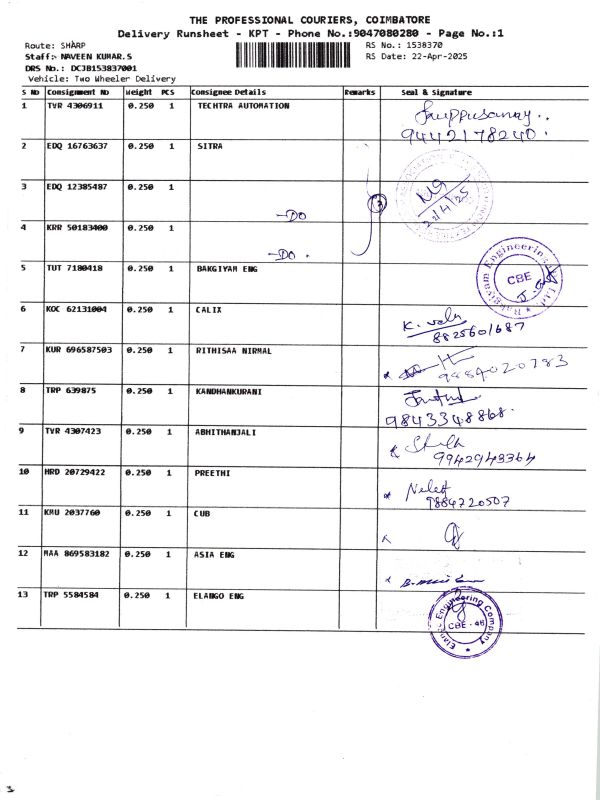 THE PROFESSIONAL COURIERS, COIMBATORE
Delivery Runsheet - KPT - Phone No.:9047080280 - Page No.:1
Route: SHARP RS No.: 1538370
Staff:- NAVEEN KUMAR.S RS Date: 22-Apr-2025
DRS No.: DCJB153837001
Vehicle: Two Wheeler Delivery
S No Consignment No Weight PCS Consignee Details Remarks Seal & Signature
1 TVR 4306911 0.250 1 TECHTRA AUTOMATION
9442178240.
2 EDQ 16763637 0.250 1 SITRA
3 EDQ 12385487 0.250 1
-DO
3
22/4/25
4 KRR 50183400 0.250 1
-DO.
5 TUT 7180418 0.250 1 BAKGIYAM ENG
Bakgiyam Engineering Ltd.
CBE
6 KOC 62131004 0.250 1 CALIX
K. Valu
8825601687
7 KUR 696587503 0.250 1 RITHISAA NIRMAL
9884020783
8 TRP 639875 0.250 1 KANDHANKURANI
9843348868.
9 TVR 4307423 0.250 1 ABHITHANJALI
9942943364
10 HRD 20729422 0.250 1 PREETHI
9884720507
11 KMU 2037760 0.250 1 CUB
12 MAA 869583182 0.250 1 ASIA ENG
13 TRP 5584584 0.250 1 ELANGO ENG
Elango Engineering Company
CBE - 46
3